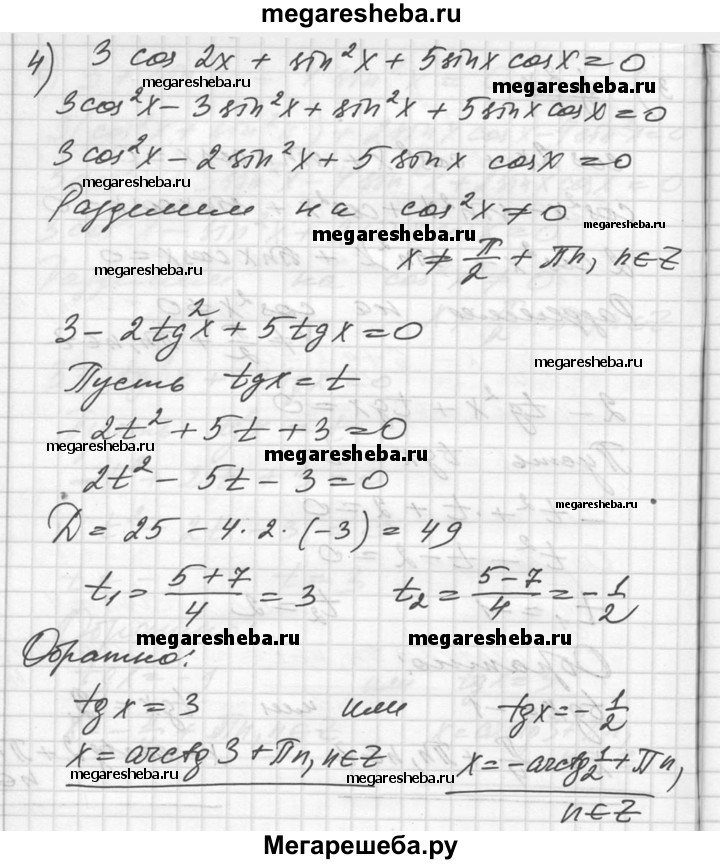 megaresheba.ru
4) 3 cos 2x + sin²x + 5 sinx cosx = 0
megaresheba.ru megaresheba.ru
3cos²x − 3 sin²x + sin²x + 5 sinx cosx = 0
3cos²x − 2 sin²x + 5 sinx cosx = 0
megaresheba.ru
Разделим на cos²x ≠ 0
megaresheba.ru megaresheba.ru
x ≠ π/2 + πn, n∈Z
megaresheba.ru
3 − 2tg²x + 5tgx = 0
megaresheba.ru
Пусть tgx = t
−2t² + 5t + 3 = 0
megaresheba.ru megaresheba.ru
2t² − 5t − 3 = 0
megaresheba.ru
D = 25 − 4·2·(−3) = 49
t₁ = (5+7)/4 = 3 t₂ = (5−7)/4 = −1/2
megaresheba.ru megaresheba.ru
Обратно:
tgx = 3 или tgx = −1/2
x = arctg 3 + πn, n∈Z x = −arctg 1/2 + πn,
megaresheba.ru megaresheba.ru
n∈Z
Мегарешеба.ру